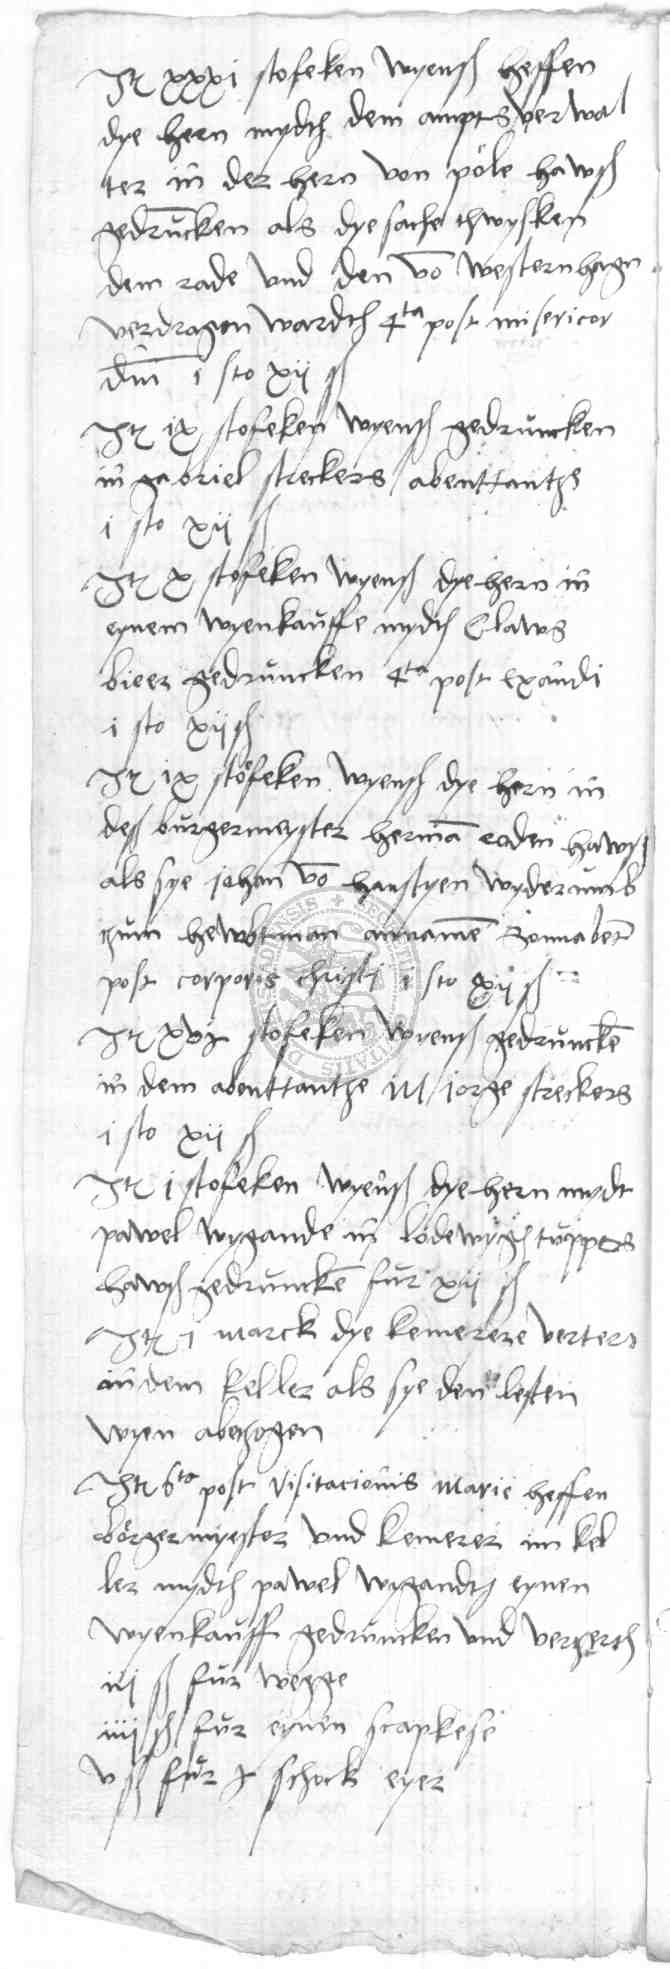 It xxxi stofeken wyenß heffen
dye hern mydth dem amptsverwal
ter in der hern von pöle hawß
gedruncken als dye sache thwysken
dem rade und den vo westernhagn
verdragen wardth 4ta post misericor
dni i sto xij ß
It ix stofeken wyenß gedruncken
in gabriel streckers abenttantze
i sto xij ß
It x stofeken wyenß dye hern in
eynem wyenkauffe mydth Claws
bieer gedruncken 4ta post Exaudi
i sto xij ß
It ix stöfeken wyenß dye hern in
deß burgermeyster herma roden hawß
als sye johan vo hanstyen wyderumb
zum hewbtman anname Sonnabent
post corporis christi i sto xij ß
It xvj stofeken wyenß gedruncke
in dem abenttantze M jorge streckers
i sto xij ß
It j stofeken wyenß dye hern mydt
pawel wygande in lodewygß tuppes
hawß gedruncke fur xij ß
It i marck dye kemerere verter
in dem keller als sye den lesten
wyen abezogen
It 6ta post visitacionis Marie heffen
börgermyester und kemerer im kel
ler mydth pawel wygandth eynen
wyenkauff gedruncken und verzerth
iij ß fur wegge
iiij ß fur eynen scapkese
v ß fur j schock eyer